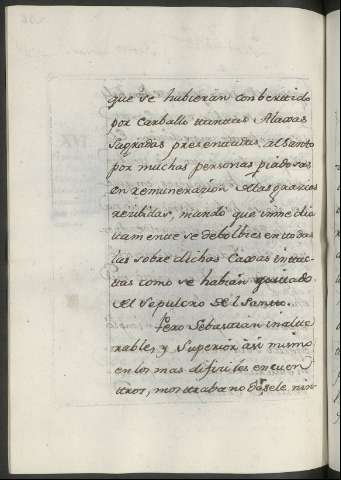 que se hubieran conbertido
por Carballo tantas Alaxas
sagradas presentadas, al santo
por muchas personas piadosas
en remuneracion de las gracias
recibidas, mandó que inmedia
tamente se debolbiesen todas
las sobre dichas Caxas intac
tas como se habian quitado
del Sepulcro del Santo.
Pero Sebastian inalte
rable, y superior á si mismo
en los mas dificiles encuen
tros, mostraba no dársele nin